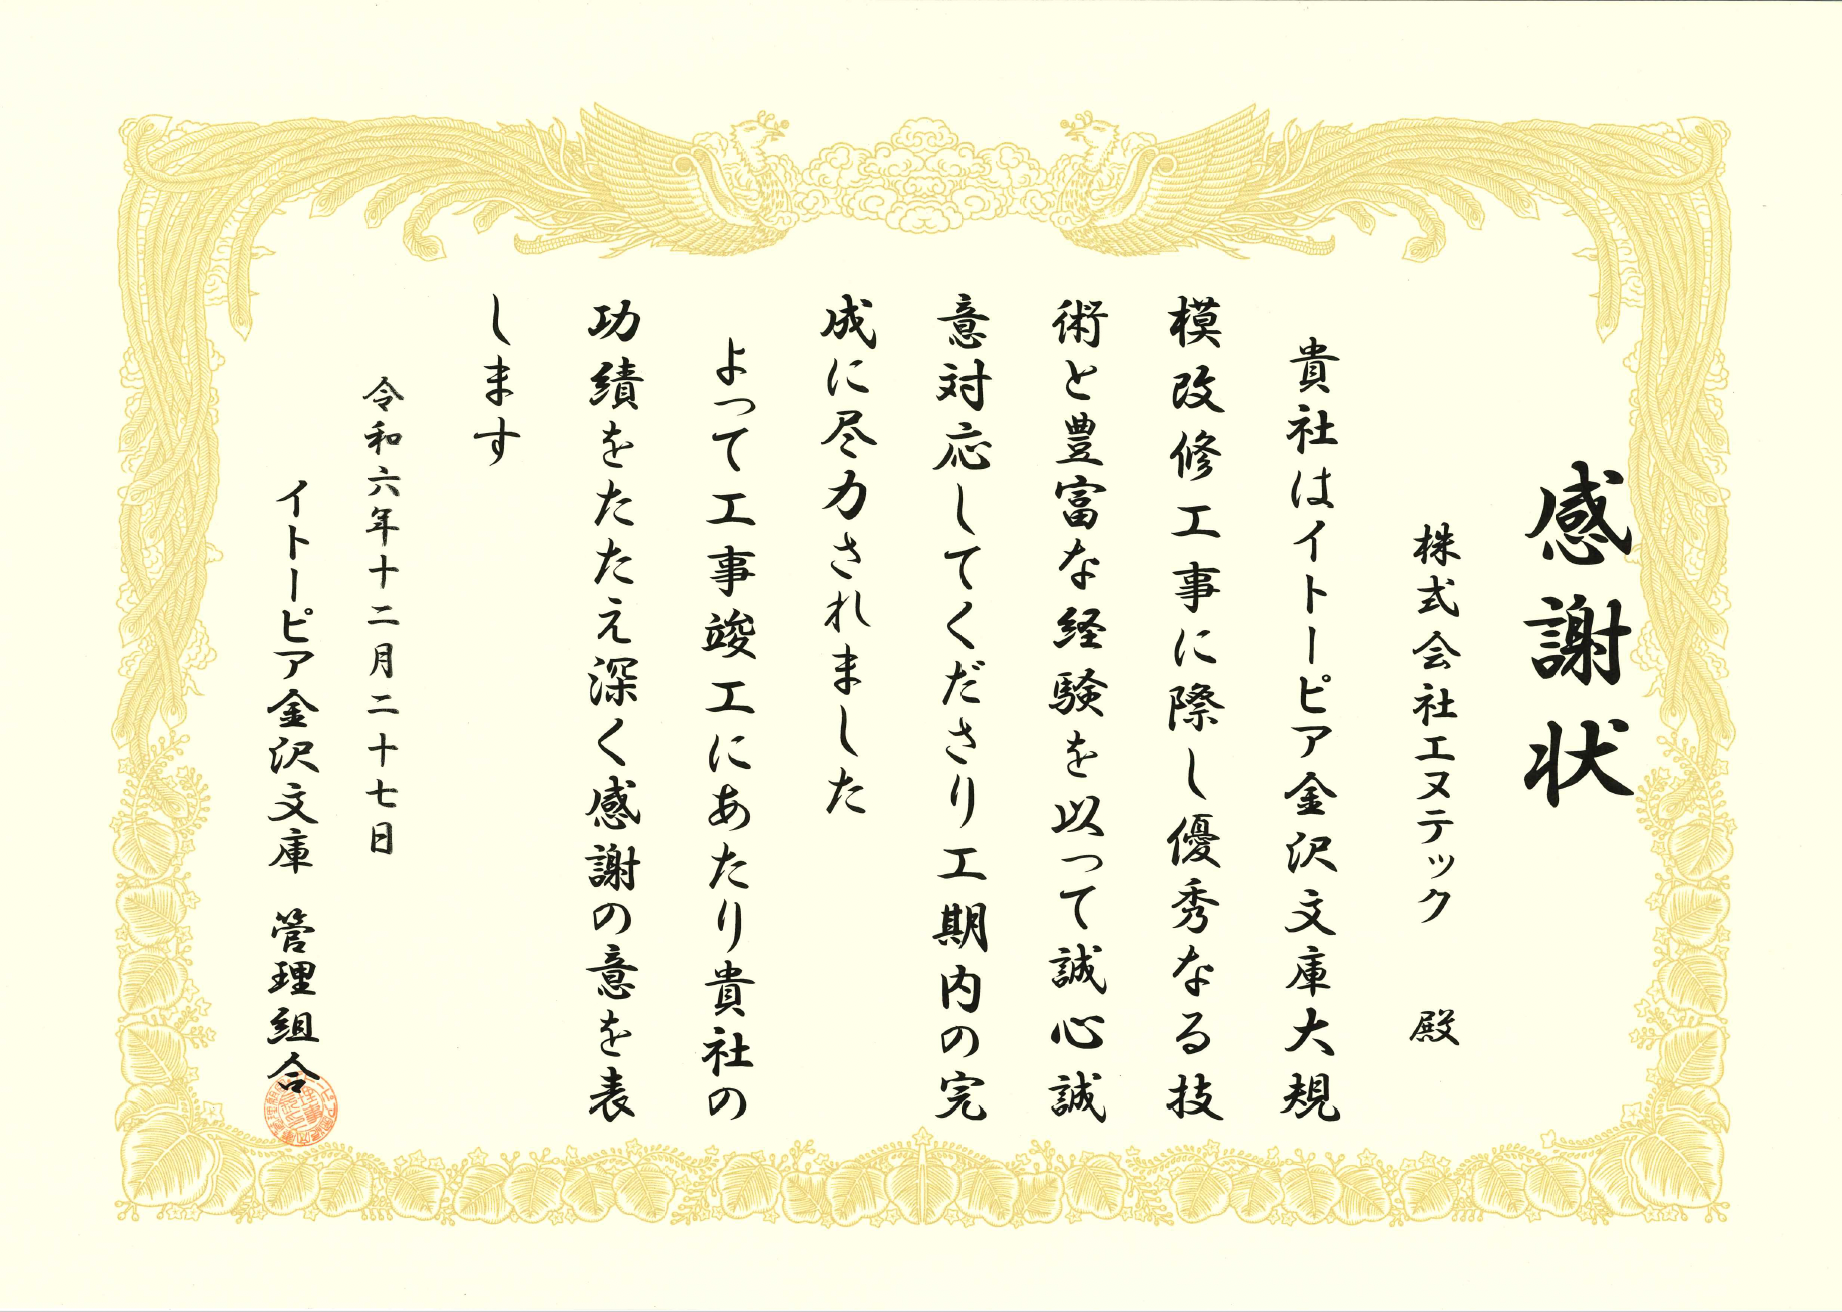 感謝状
株式会社エヌテック 殿
貴社はイトーピア金沢文庫大規
模改修工事に際し優秀なる技
術と豊富な経験を以って誠心誠
意対応してくださり工期内の完
成に尽力されました
よって工事竣工にあたり貴社の
功績をたたえ深く感謝の意を表
します
令和六年十二月二十七日
イトーピア金沢文庫 管理組合